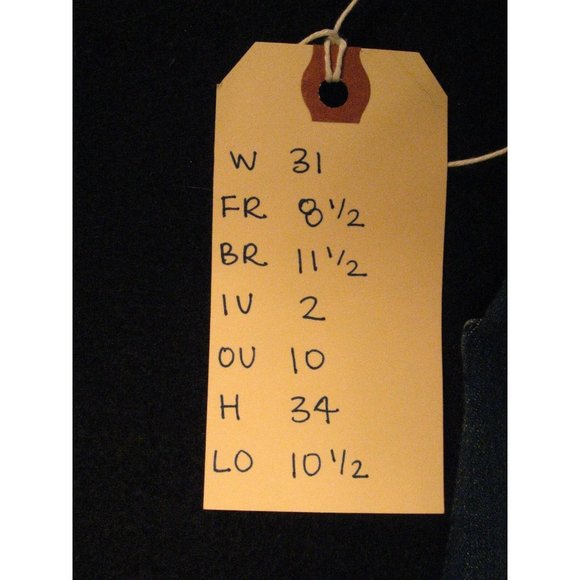 W 31
FR 8 1/2
BR 11 1/2
IU 2
OU 10
H 34
LO 10 1/2